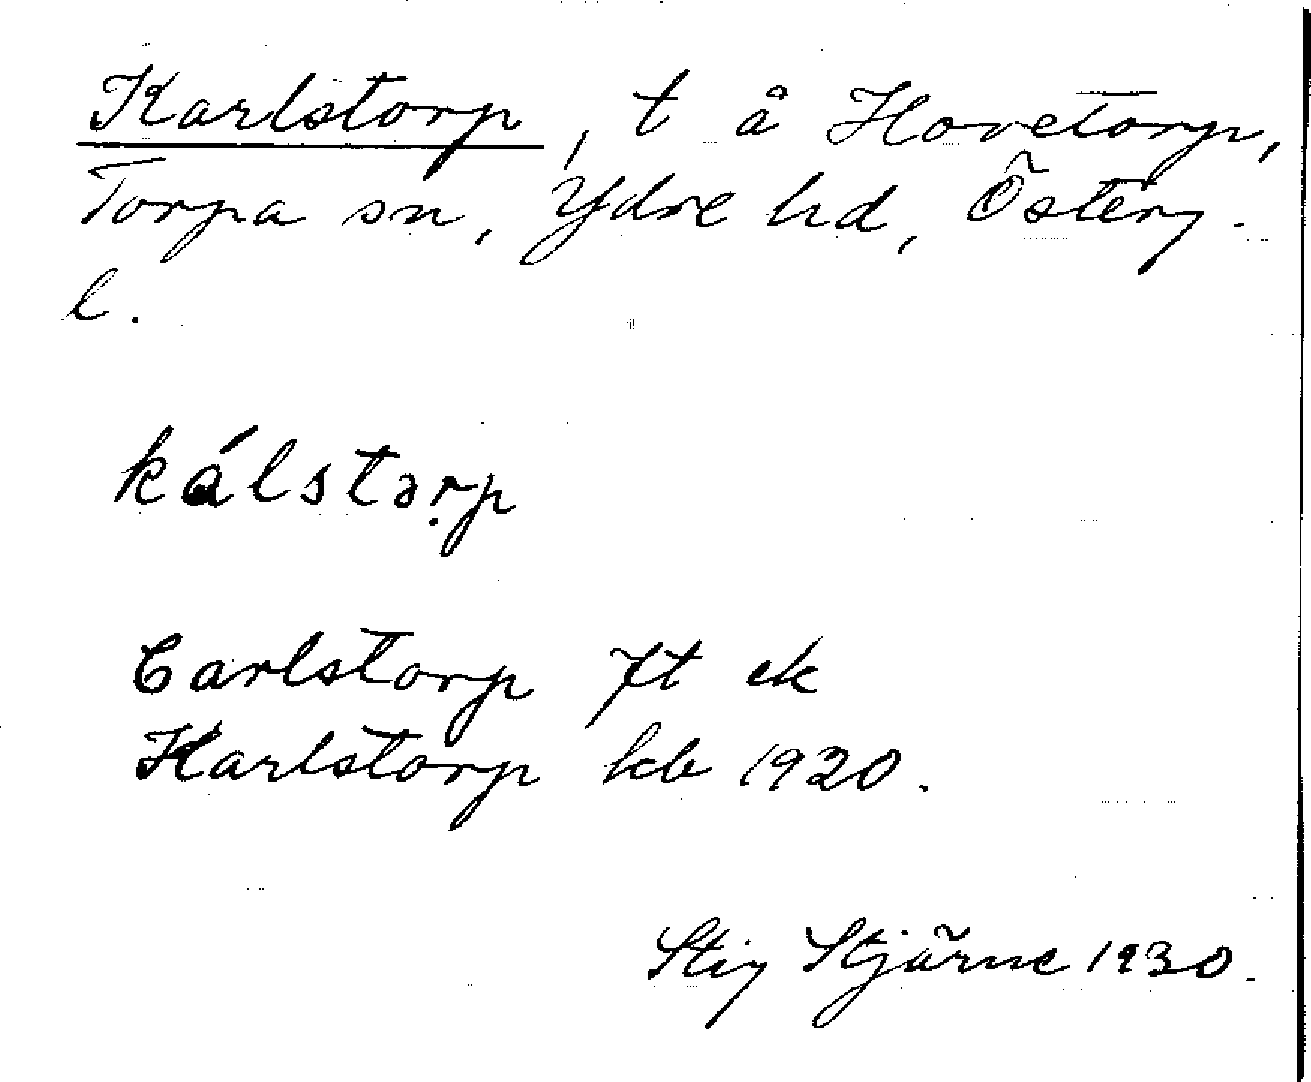 Karlstorp, t å Hovetorp,
Torpa sn, Ydre hd, Österg.
l.
kálstərp
Carlstorp Jt ek
Karlstorp kb 1920.
Stig Stjärne 1930.